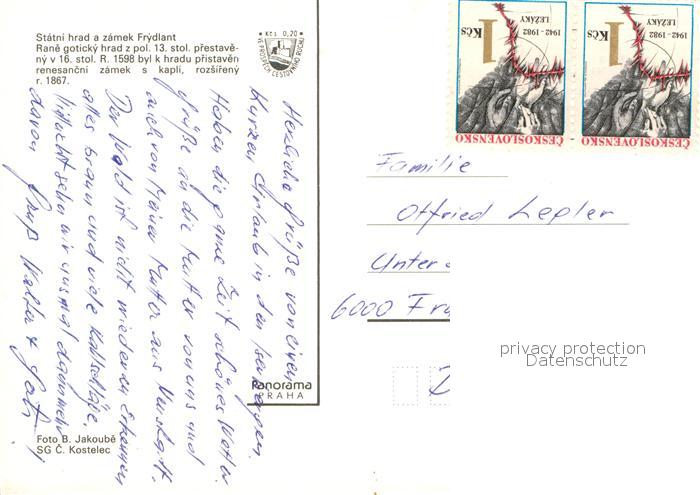 Státní hrad a zámek Frýdlant
Raně gotický hrad z pol. 13. stol. přestavě-
ný v 16. stol. R. 1598 byl k hradu přistavěn
renesanční zámek s kaplí, rozšířený
r. 1867.
Kčs 0,20
VE PROSPĚCH CESTOVNÍHO RUCHU
1 Kčs
1942-1982
LEŽÁKY
ČESKOSLOVENSKO
1 Kčs
1942-1982
LEŽÁKY
ČESKOSLOVENSKO
Herzliche Grüße von einem
kurzen Urlaub in den
Haben die ganze Zeit schönes Wetter.
Grüße an die Mutter von uns und
auch von Meiner Mutter aus
Der Wald ist nicht wieder zu Erkennen
alles braun und viele Kahlschläge.
Vielleicht sehn wir uns mal
davon Gruß Walter +
Familie
Otfried Lepler
Unter
6000 Fr
D
Panorama
PRAHA
Foto B. Jakoubě
SG Č. Kostelec
privacy protection
Datenschutz